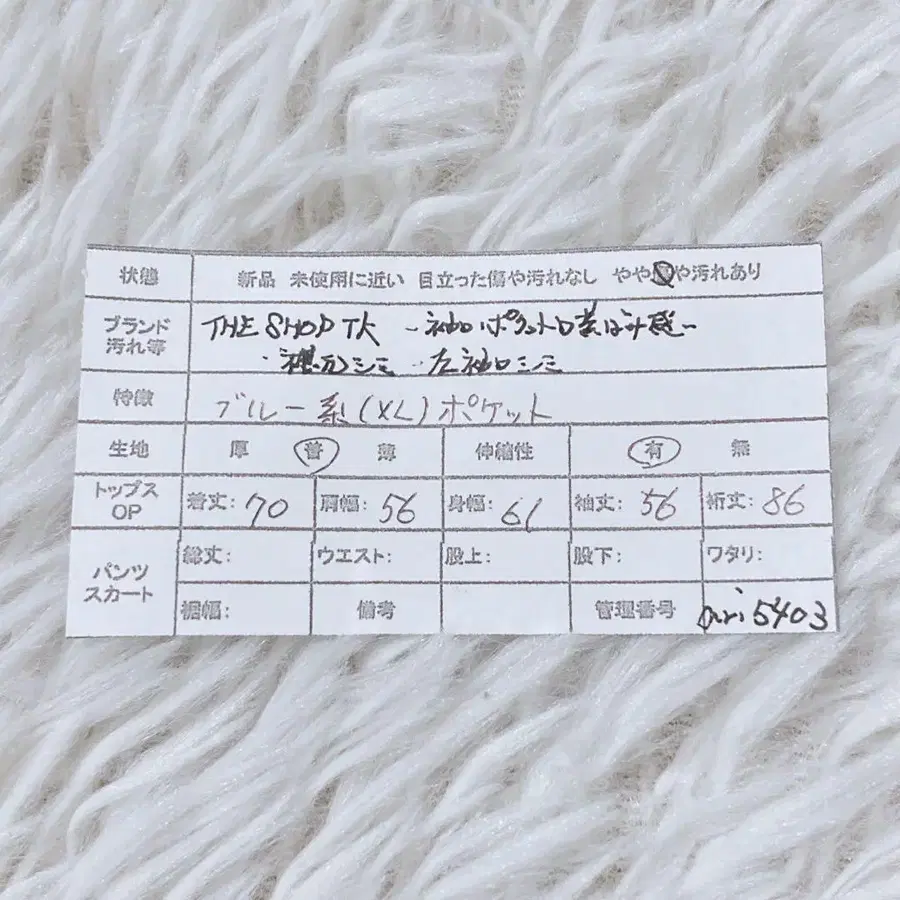 状態 新品 未使用に近い 目立った傷や汚れなし やや傷や汚れあり
ブランド
汚れ等
THE SHOP TK ・袖口・ポケット口黄ばみ感・
シミ ・左袖口シミ
特徴 ブルー系(XL)ポケット
生地 厚 普 薄 伸縮性 有 無
トップス
OP
着丈: 70 肩幅: 56 身幅: 61 袖丈: 56 裄丈: 86
パンツ
スカート
総丈: ウエスト: 股上: 股下: ワタリ:
裾幅: 備考 管理番号 5403